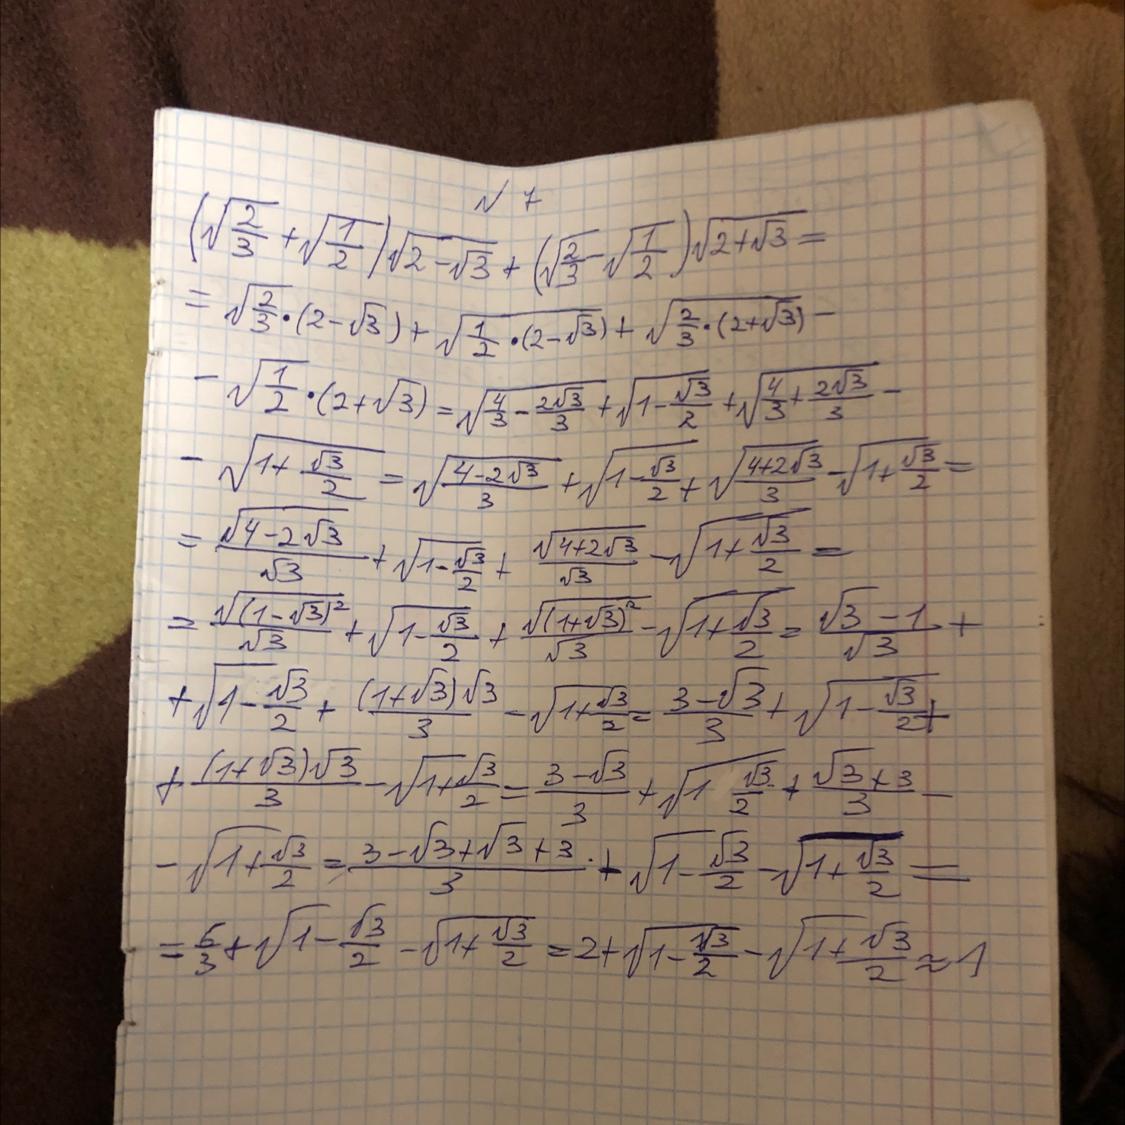 № 7
(√(2/3) + √(1/2))√(2-√3) + (√(2/3) - √(1/2))√(2+√3) =
= √(2/3)·(2-√3) + √(1/2·(2-√3)) + √(2/3·(2+√3)) -
- √(1/2)·(2+√3) = √(4/3 - 2√3/3) + √(1-√3/2) + √(4/3 + 2√3/3) -
- √(1+√3/2) = √((4-2√3)/3) + √(1-√3/2) + √((4+2√3)/3) - √(1+√3/2) =
= √(4-2√3)/√3 + √(1-√3/2) + √(4+2√3)/√3 - √(1+√3/2) =
= √((1-√3)²)/√3 + √(1-√3/2) + √((1+√3)²)/√3 - √(1+√3/2) = (√3-1)/√3 +
+ √(1-√3/2) + (1+√3)√3/3 - √(1+√3/2) = (3-√3)/3 + √(1-√3/2) +
+ (1+√3)√3/3 - √(1+√3/2) = (3-√3)/3 + √(1 √3/2) + (√3+3)/3 -
- √(1+√3/2) = (3-√3+√3+3)/3 + √(1-√3/2) - √(1+√3/2) =
= 6/3 + √(1-√3/2) - √(1+√3/2) = 2 + √(1-√3/2) - √(1+√3/2) ≈ 1